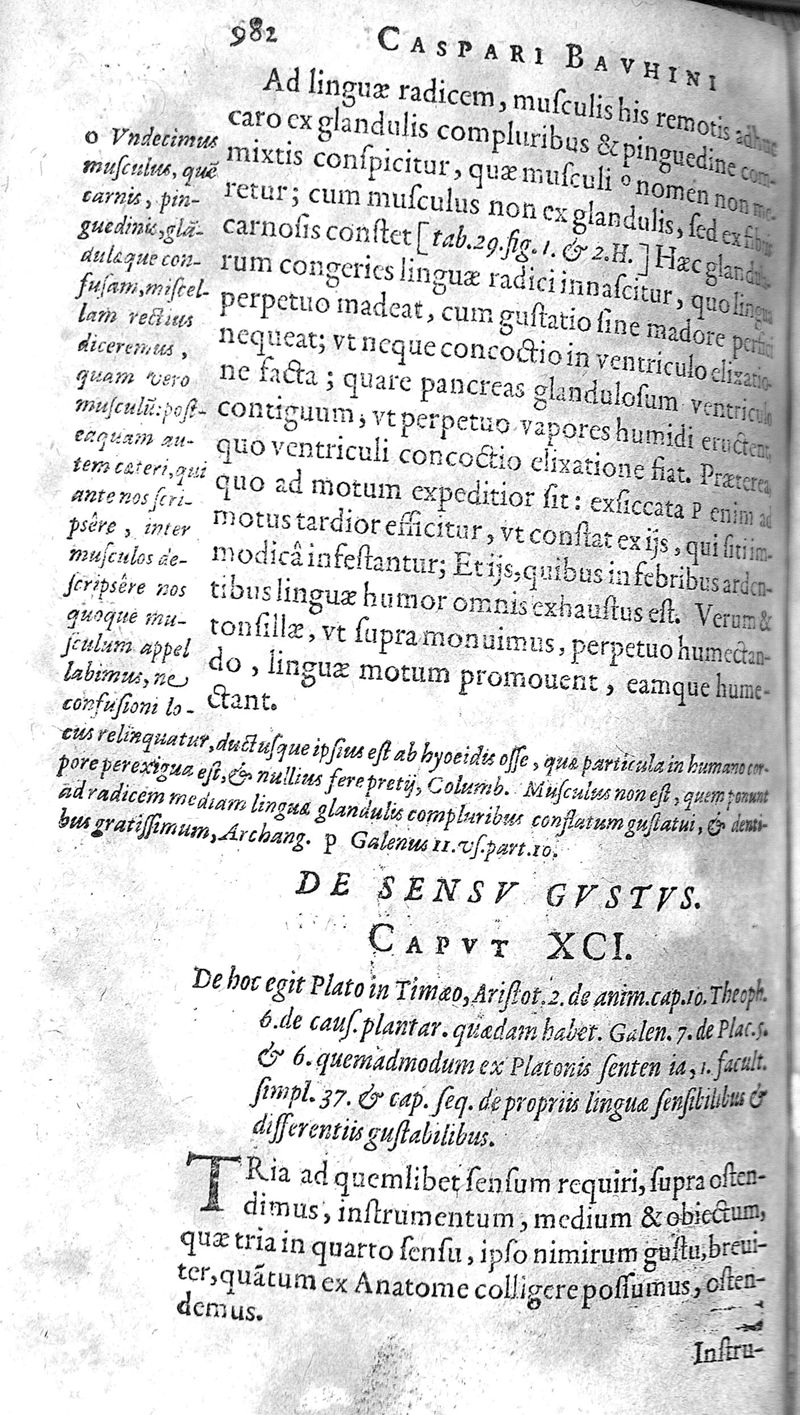 982 CASPARI BAVHINI
Ad linguæ radicem, muſculis his remotis adhuc
caro ex glandulis compluribus & pinguedine com-
mixtis conſpicitur, quæ muſculi º nomen non me-
retur; cum muſculus non ex glandulis, ſed ex fibris
carnoſis conſtet [tab.29.fig.1.& 2.H.] Hæc glandu-
rum congeries linguæ radici innaſcitur, quo lingua
perpetuo madeat, cum guſtatio ſine madore perfici
nequeat; vt neque concoctio in ventriculo elixatio-
ne facta; quare pancreas glanduloſum ventriculo
contiguum, vt perpetuo vapores humidi eructent,
quo ventriculi concoctio elixatione fiat. Præterea,
quo ad motum expeditior ſit: exſiccata P enim ad
motus tardior efficitur, vt conſtat ex ijs, qui ſiti im-
modicâ infeſtantur; Et ijs, quibus in febribus arden-
tibus linguæ humor omnis exhauſtus eſt. Verum &
tonſillæ, vt ſupra monuimus, perpetuo humectan-
do, linguæ motum promouent, eamque hume-
ctant.
o Vndecimus
muſculus, quē
carnis, pin-
guedinis, glā-
dulæque con-
fuſam, miſcel-
lam rectius
diceremus,
quam vero
muſculū: poſt-
eaquam au-
tem cæteri, qui
ante nos ſcri-
pſêre, inter
muſculos de-
ſcripſêre nos
quoque mu-
ſculum appel
labimus, ne
confuſioni lo-
cus relinquatur, ductuſque ipſius eſt ab hyoeidis oſſe, quæ particula in humano cor-
pore perexigua eſt, & nullius fere pretij, Columb. Muſculus non eſt, quem ponunt
ad radicem mediam linguæ glandulis compluribus conflatum guſtatui, & denti-
bus gratiſſimum, Archang. p Galenus 11.vſ.part.10.
DE SENSV GVSTVS.
CAPVT XCI.
De hoc egit Plato in Timæo, Ariſtot.2. de anim.cap.10. Theoph.
6.de cauſ.plantar. quædam habet. Galen. 7. de Plac.5.
& 6. quemadmodum ex Platonis ſenten ia, 1. facult.
ſimpl. 37. & cap. ſeq. de propriis linguæ ſenſibilibus &
differentiis guſtabilibus.
TRia ad quemlibet ſenſum requiri, ſupra oſten-
dimus, inſtrumentum, medium & obiectum,
quæ tria in quarto ſenſu, ipſo nimirum guſtu, breui-
ter, quātum ex Anatome colligere poſſumus, oſten-
demus.
Inſtru-